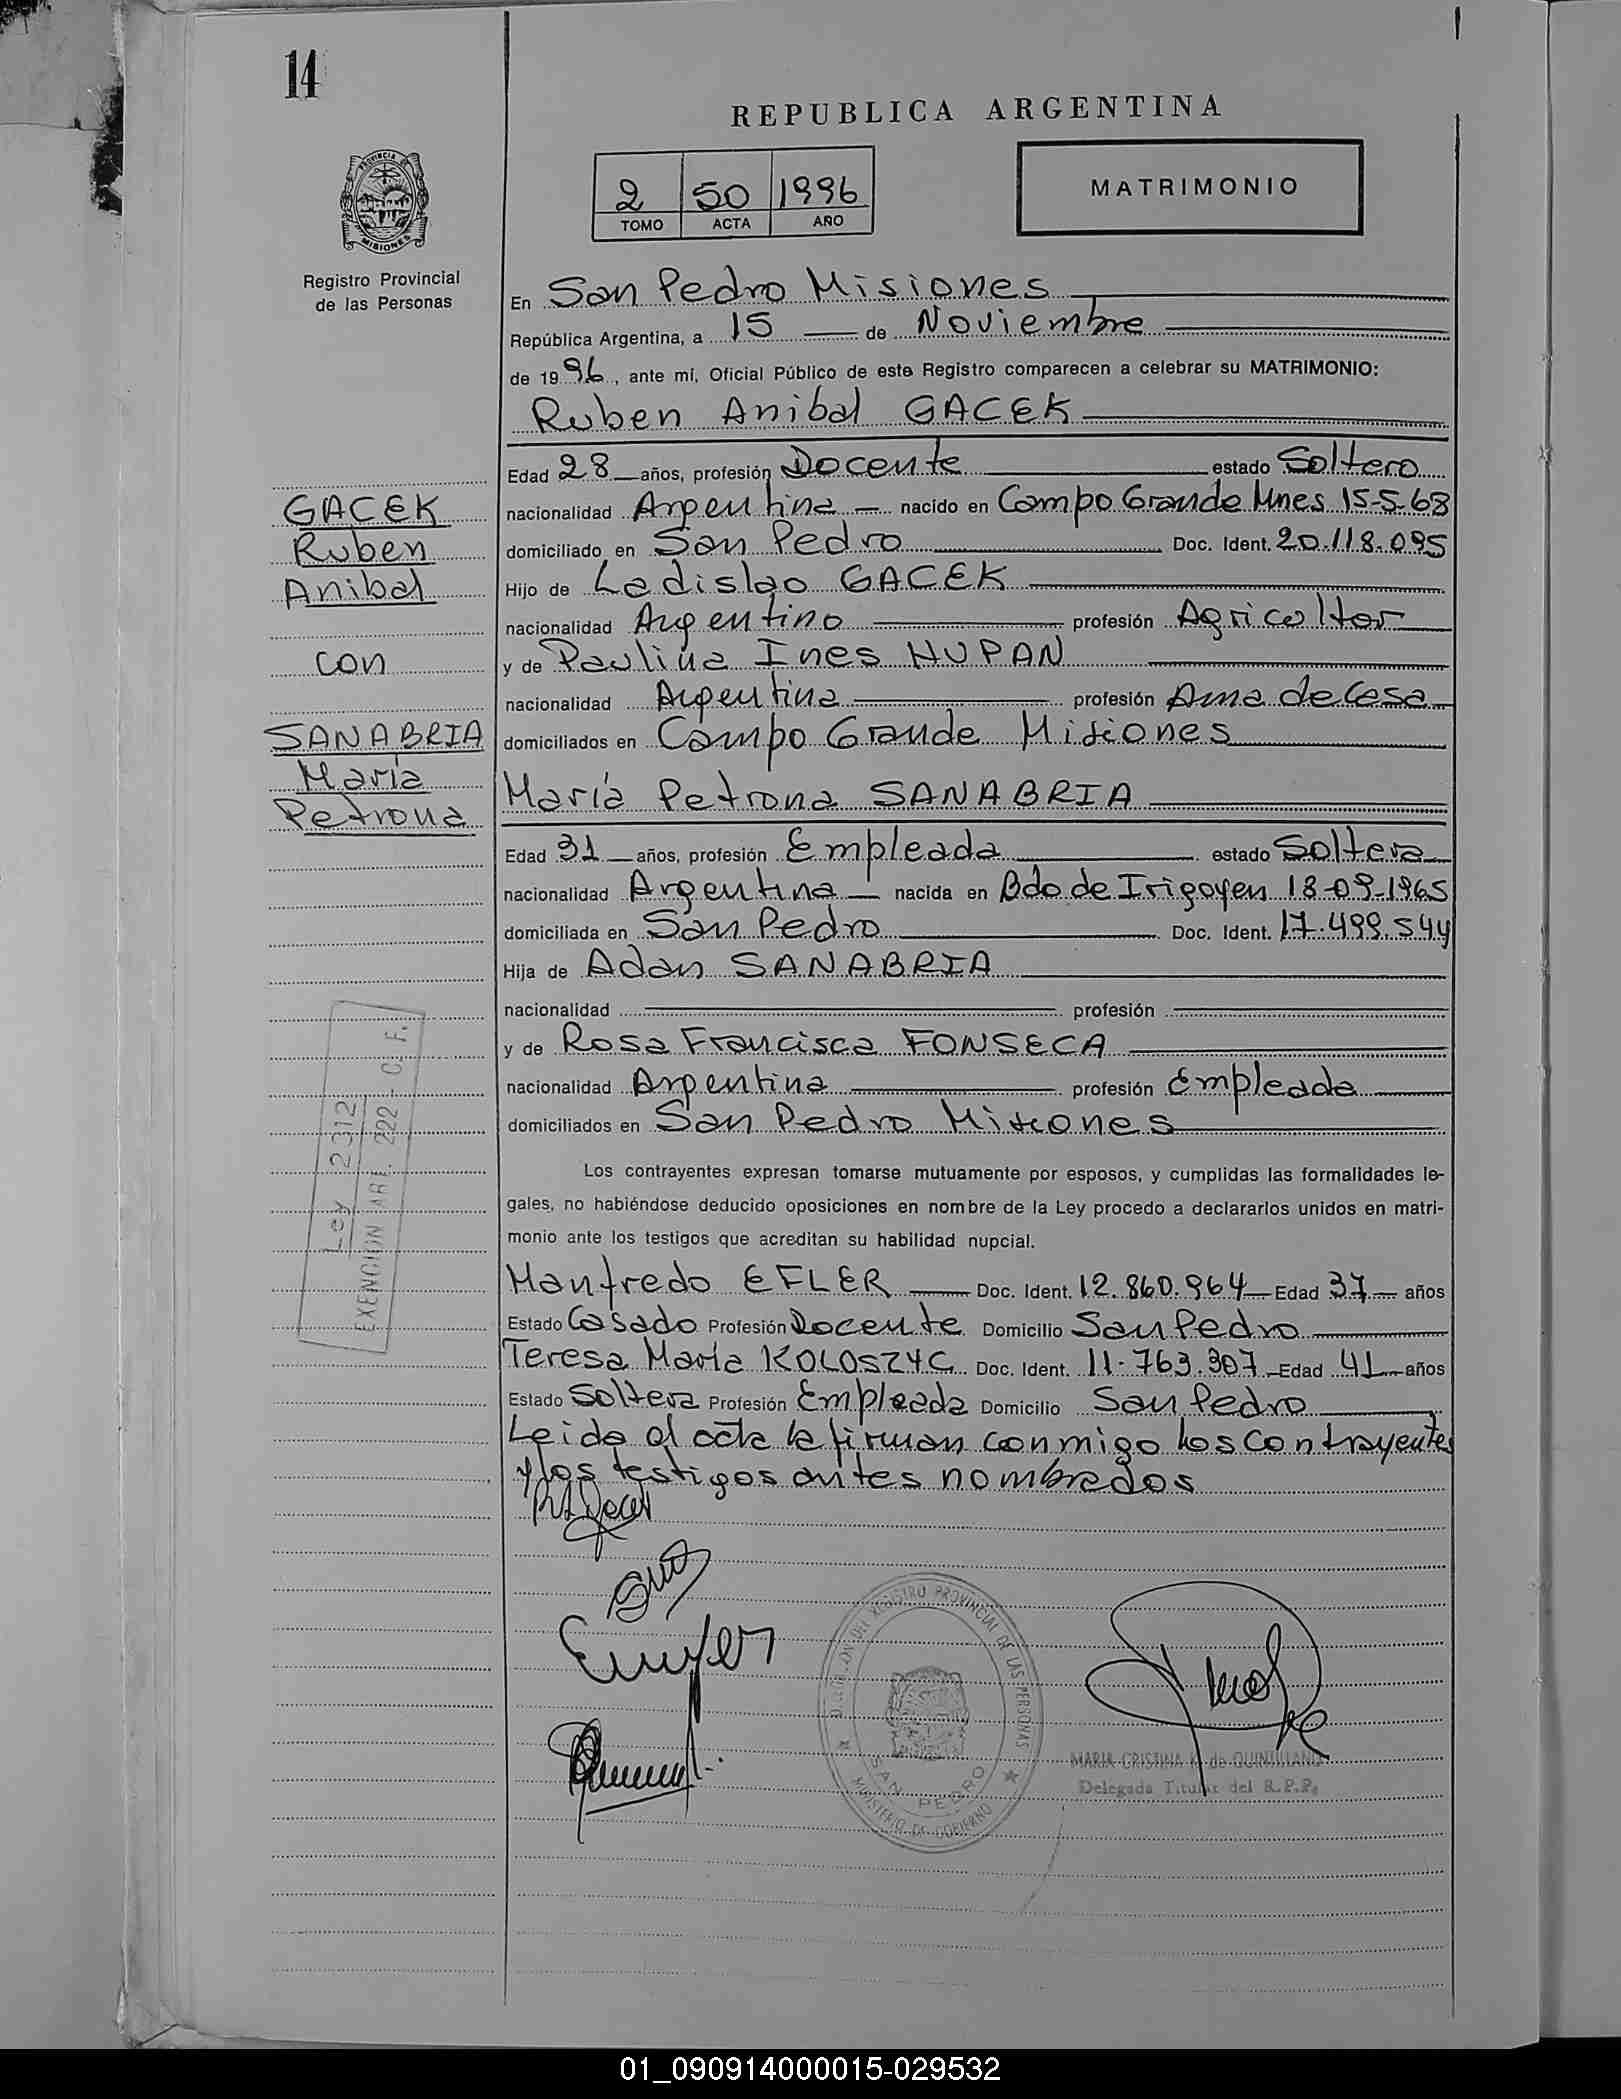 14
REPUBLICA ARGENTINA
2 50 1996
TOMO ACTA AÑO
MATRIMONIO
PROVINCIA DE
MISIONES
Registro Provincial
de las Personas
En San Pedro Misiones
República Argentina, a 15 de Noviembre
de 1996, ante mí, Oficial Público de este Registro comparecen a celebrar su MATRIMONIO:
Ruben Anibal GACEK
Edad 28 años, profesión Docente estado Soltero
GACEK
nacionalidad Argentina nacido en Campo Grande Mnes 15-5-68
Ruben
domiciliado en San Pedro Doc. Ident. 20.118.095
Anibal
Hijo de Ladislao GACEK
nacionalidad Argentino profesión Agricultor
con
y de Paulina Ines HUPAN
nacionalidad Argentina profesión Ama de Casa
SANABRIA
domiciliados en Campo Grande Misiones
María
Petrona
María Petrona SANABRIA
Edad 31 años, profesión Empleada estado Soltera
nacionalidad Argentina nacida en Bdo de Irigoyen 18-09-1965
domiciliada en San Pedro Doc. Ident. 17.499.544
Hija de Adan SANABRIA
nacionalidad profesión
y de Rosa Francisca FONSECA
nacionalidad Argentina profesión Empleada
domiciliados en San Pedro Misiones
Ley 2312
EXENCION ART. 222 - C. F.
Los contrayentes expresan tomarse mutuamente por esposos, y cumplidas las formalidades le-
gales, no habiéndose deducido oposiciones en nombre de la Ley procedo a declararlos unidos en matri-
monio ante los testigos que acreditan su habilidad nupcial.
Manfredo EFLER Doc. Ident. 12.860.964 Edad 37 años
Estado Casado Profesión Docente Domicilio San Pedro
Teresa María KOLOSZYC Doc. Ident. 11.763.307 Edad 41 años
Estado Soltera Profesión Empleada Domicilio San Pedro
Leida el acta la firman conmigo los contrayentes
y los testigos antes nombrados
DIRECCION DEL REGISTRO PROVINCIAL DE LAS PERSONAS
SAN PEDRO
MINISTERIO DE GOBIERNO
MARIA CRISTINA de QUINTILLANO
Delegada Titular del R.P.P.
01_090914000015-029532